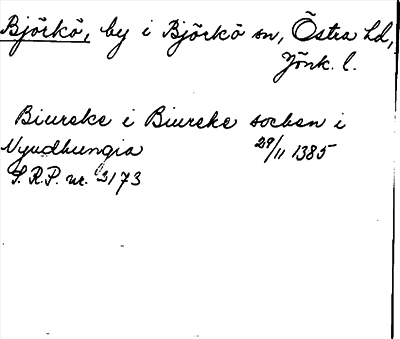 Björkö, by i Björkö sn, Östra hd,
Jönk. l.
Biureke i Biureke socken i
Nyudhungia 29/11 1385
S.R.P. nr. 3173